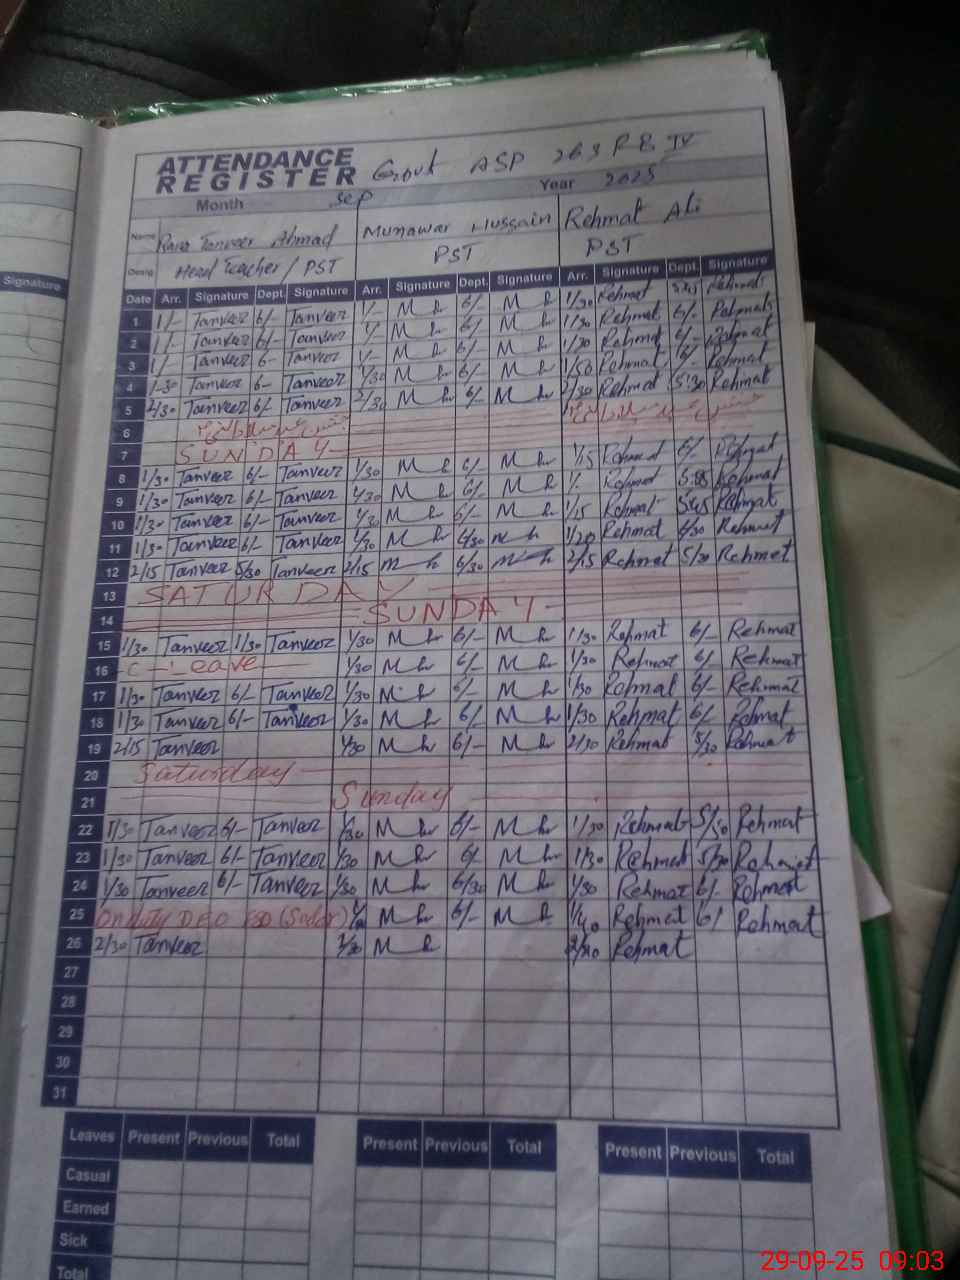 ATTENDANCE REGISTER Govt ASP 263 RB IV
Month Sep Year 2025
Name Rana Tanveer Ahmad Munawar Hussain Rehmat Ali
Desig Head Teacher / PST PST PST
Signature
Date Arr. Signature Dept. Signature Arr. Signature Dept. Signature Arr. Signature Dept. Signature
1 1/- Tanveer 6/- Tanveer 1/- M h 6/- M h 1/30 Rehmat 5:45 Rehmat
2 1/- Tanveer 6/- Tanveer 1/- M h 6/- M h 1/30 Rehmat 6/- Rehmat
3 1/- Tanveer 6- Tanveer 1/- M h 6/- M h 1/30 Rehmat 6/- Rehmat
4 1-30 Tanveer 6- Tanveer 1/30 M h 6/- M h 1/50 Rehmat 6/- Rehmat
5 2/30 Tanveer 6/- Tanveer 2/30 M h 6/- M h 2/30 Rehmat 5:30 Rehmat
6
7 SUNDAY
8 1/30 Tanveer 6/- Tanveer 1/30 M h 6/- M h 1/15 Rehmat 6/- Rehmat
9 1/30 Tanveer 6/- Tanveer 1/30 M h 6/- M h 1/. Rehmat 5:55 Rehmat
10 1/30 Tanveer 6/- Tanveer 1/30 M h 6/- M h 1/15 Rehmat 5:45 Rehmat
11 1/30 Tanveer 6/- Tanveer 1/30 M h 6/30 M h 1/20 Rehmat 6/30 Rehmat
12 2/15 Tanveer 5/30 Tanveer 2/15 M h 6/30 M h 2/15 Rehmat 5/30 Rehmat
13 SATURDAY
14 SUNDAY
15 1/30 Tanveer 1/30 Tanveer 1/30 M h 6/- M h 1/30 Rehmat 6/- Rehmat
16 C-Leave 1/30 M h 6/- M h 1/30 Rehmat 6/- Rehmat
17 1/30 Tanveer 6/- Tanveer 1/30 M h 6/- M h 1/30 Rehmat 6/- Rehmat
18 1/30 Tanveer 6/- Tanveer 1/30 M h 6/- M h 1/30 Rehmat 6/- Rehmat
19 2/15 Tanveer 1/30 M h 6/- M h 2/30 Rehmat 5/30 Rehmat
20 Saturday
21 Sunday
22 1/30 Tanveer 6/- Tanveer 1/30 M h 6/- M h 1/30 Rehmat 5/50 Rehmat
23 1/30 Tanveer 6/- Tanveer 1/30 M h 6/- M h 1/30 Rehmat 5/50 Rehmat
24 1/30 Tanveer 6/- Tanveer 1/30 M h 6/30 M h 1/30 Rehmat 6/- Rehmat
25 On duty DEO FSD (Sadar) M h 6/- M h 1/40 Rehmat 6/ Rehmat
26 2/30 Tanveer 2/30 M h 2/30 Rehmat
27
28
29
30
31
Leaves Present Previous Total Present Previous Total Present Previous Total
Casual
Earned
Sick
Total
29-09-25 09:03